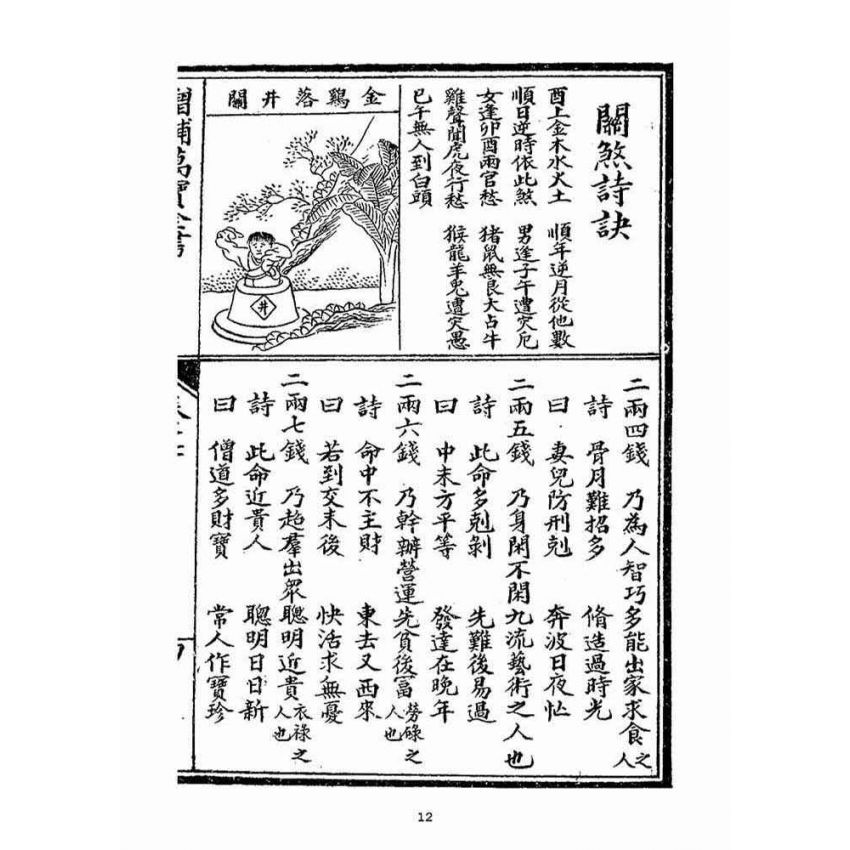 關煞詩訣
酉上金木水火土　順年逆月從他數
順日逆時依此煞　男逢子午遭灾厄
女逢卯酉兩官愁　猪鼠無良犬占牛
雞聲聞虎夜行愁　猴龍羊兎遭灾愚
巳午無人到白頭
金鷄落井關
井
二兩四錢　乃為人智巧多能出家求食之人
詩　骨月難招多　脩造過時光
曰　妻兒防刑剋　奔波日夜忙
二兩五錢　乃身閑不閑九流藝術之人也
詩　此命多剋剝　先難後易過
曰　中末方平等　發達在晚年
二兩六錢　乃幹辦營運先貧後冨勞碌之人也
詩　命中不主財　東去又西來
曰　若到交末後　快活求無憂
二兩七錢　乃超羣出眾聰明近貴衣祿之人也
詩　此命近貴人　聰明日日新
曰　僧道多財寶　常人作寶珍
12